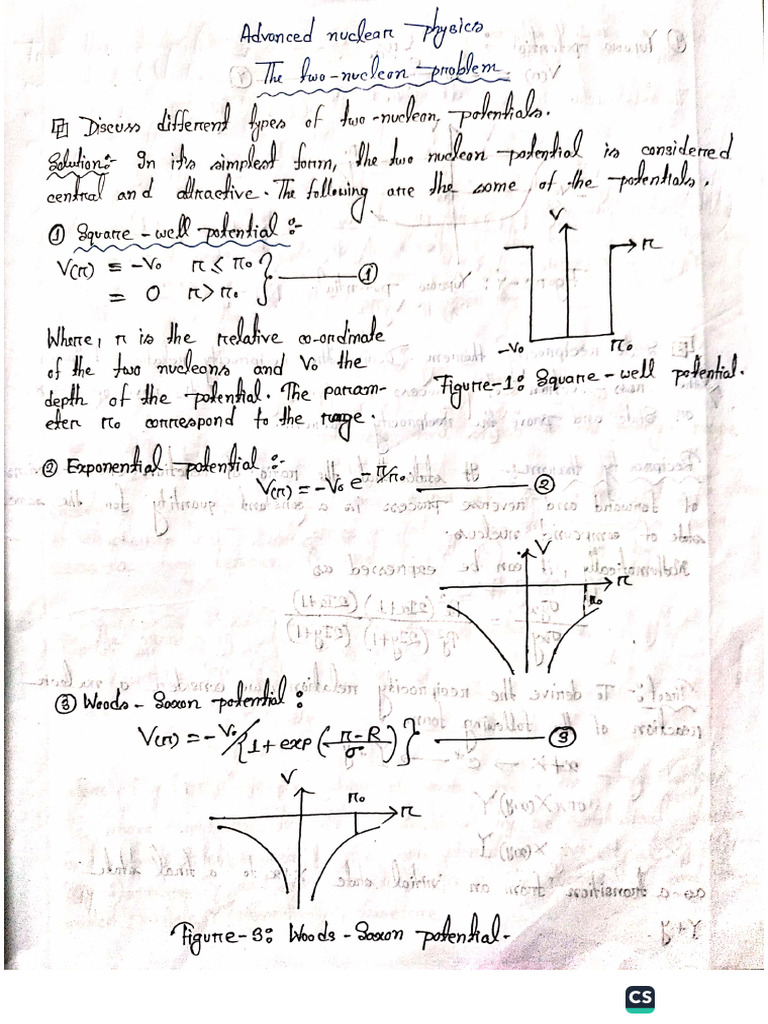 Advanced nuclear physics
The two-nucleon problem.
Discuss different types of two-nucleon, potentials.
Solution:- In its simplest form, the two nucleon potential is considered
central and attractive. The following are the some of the potentials.
① Square-well potential:-
V(r) = -V₀ r ≤ r₀
= 0 r > r₀ } ——— ①
V
r
-V₀ r₀
Figure-1: Square-well potential.
Where, r is the relative co-ordinate
of the two nucleons and V₀ the
depth of the potential. The param-
eter r₀ correspond to the range.
② Exponential potential:-
V(r) = -V₀ e^{-r/r₀} ——— ②
V
r
r₀
③ Woods-Saxon potential:
V(r) = -V₀/{1+exp((r-R)/σ)} ——— ③
V
r₀
r
Figure-3: Woods-Saxon potential.
CS